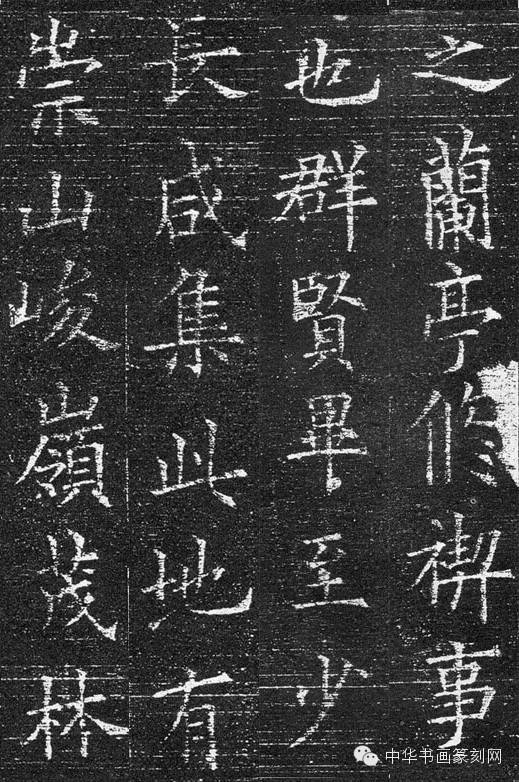 之蘭亭俢禊事
也群賢畢至少
長咸集此地有
崇山峻嶺茂林
中华书画篆刻网